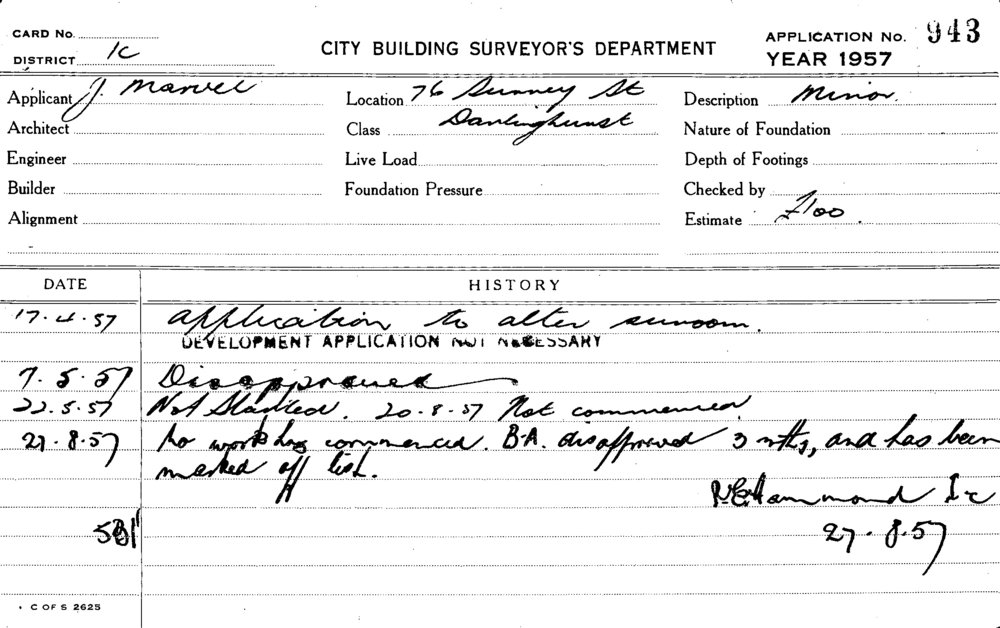 CARD No.
CITY BUILDING SURVEYOR'S DEPARTMENT
APPLICATION No. 943
DISTRICT 1c
YEAR 1957
Applicant J. Marvel Location 76 Surrey St Description Minor.
Architect Class Darlinghurst Nature of Foundation
Engineer Live Load Depth of Footings
Builder Foundation Pressure Checked by
Alignment Estimate £100
DATE HISTORY
17.4.57 Application to alter sunroom.
DEVELOPMENT APPLICATION NOT NECESSARY
7.5.57 Disapproved
22.5.57 Not Started. 20-8-57 Not commenced.
27.8.57 No work has commenced. B.A. disapproved 3 mths, and has been
marked off list.
Hammond 1c
27.8.57
C OF S 2625